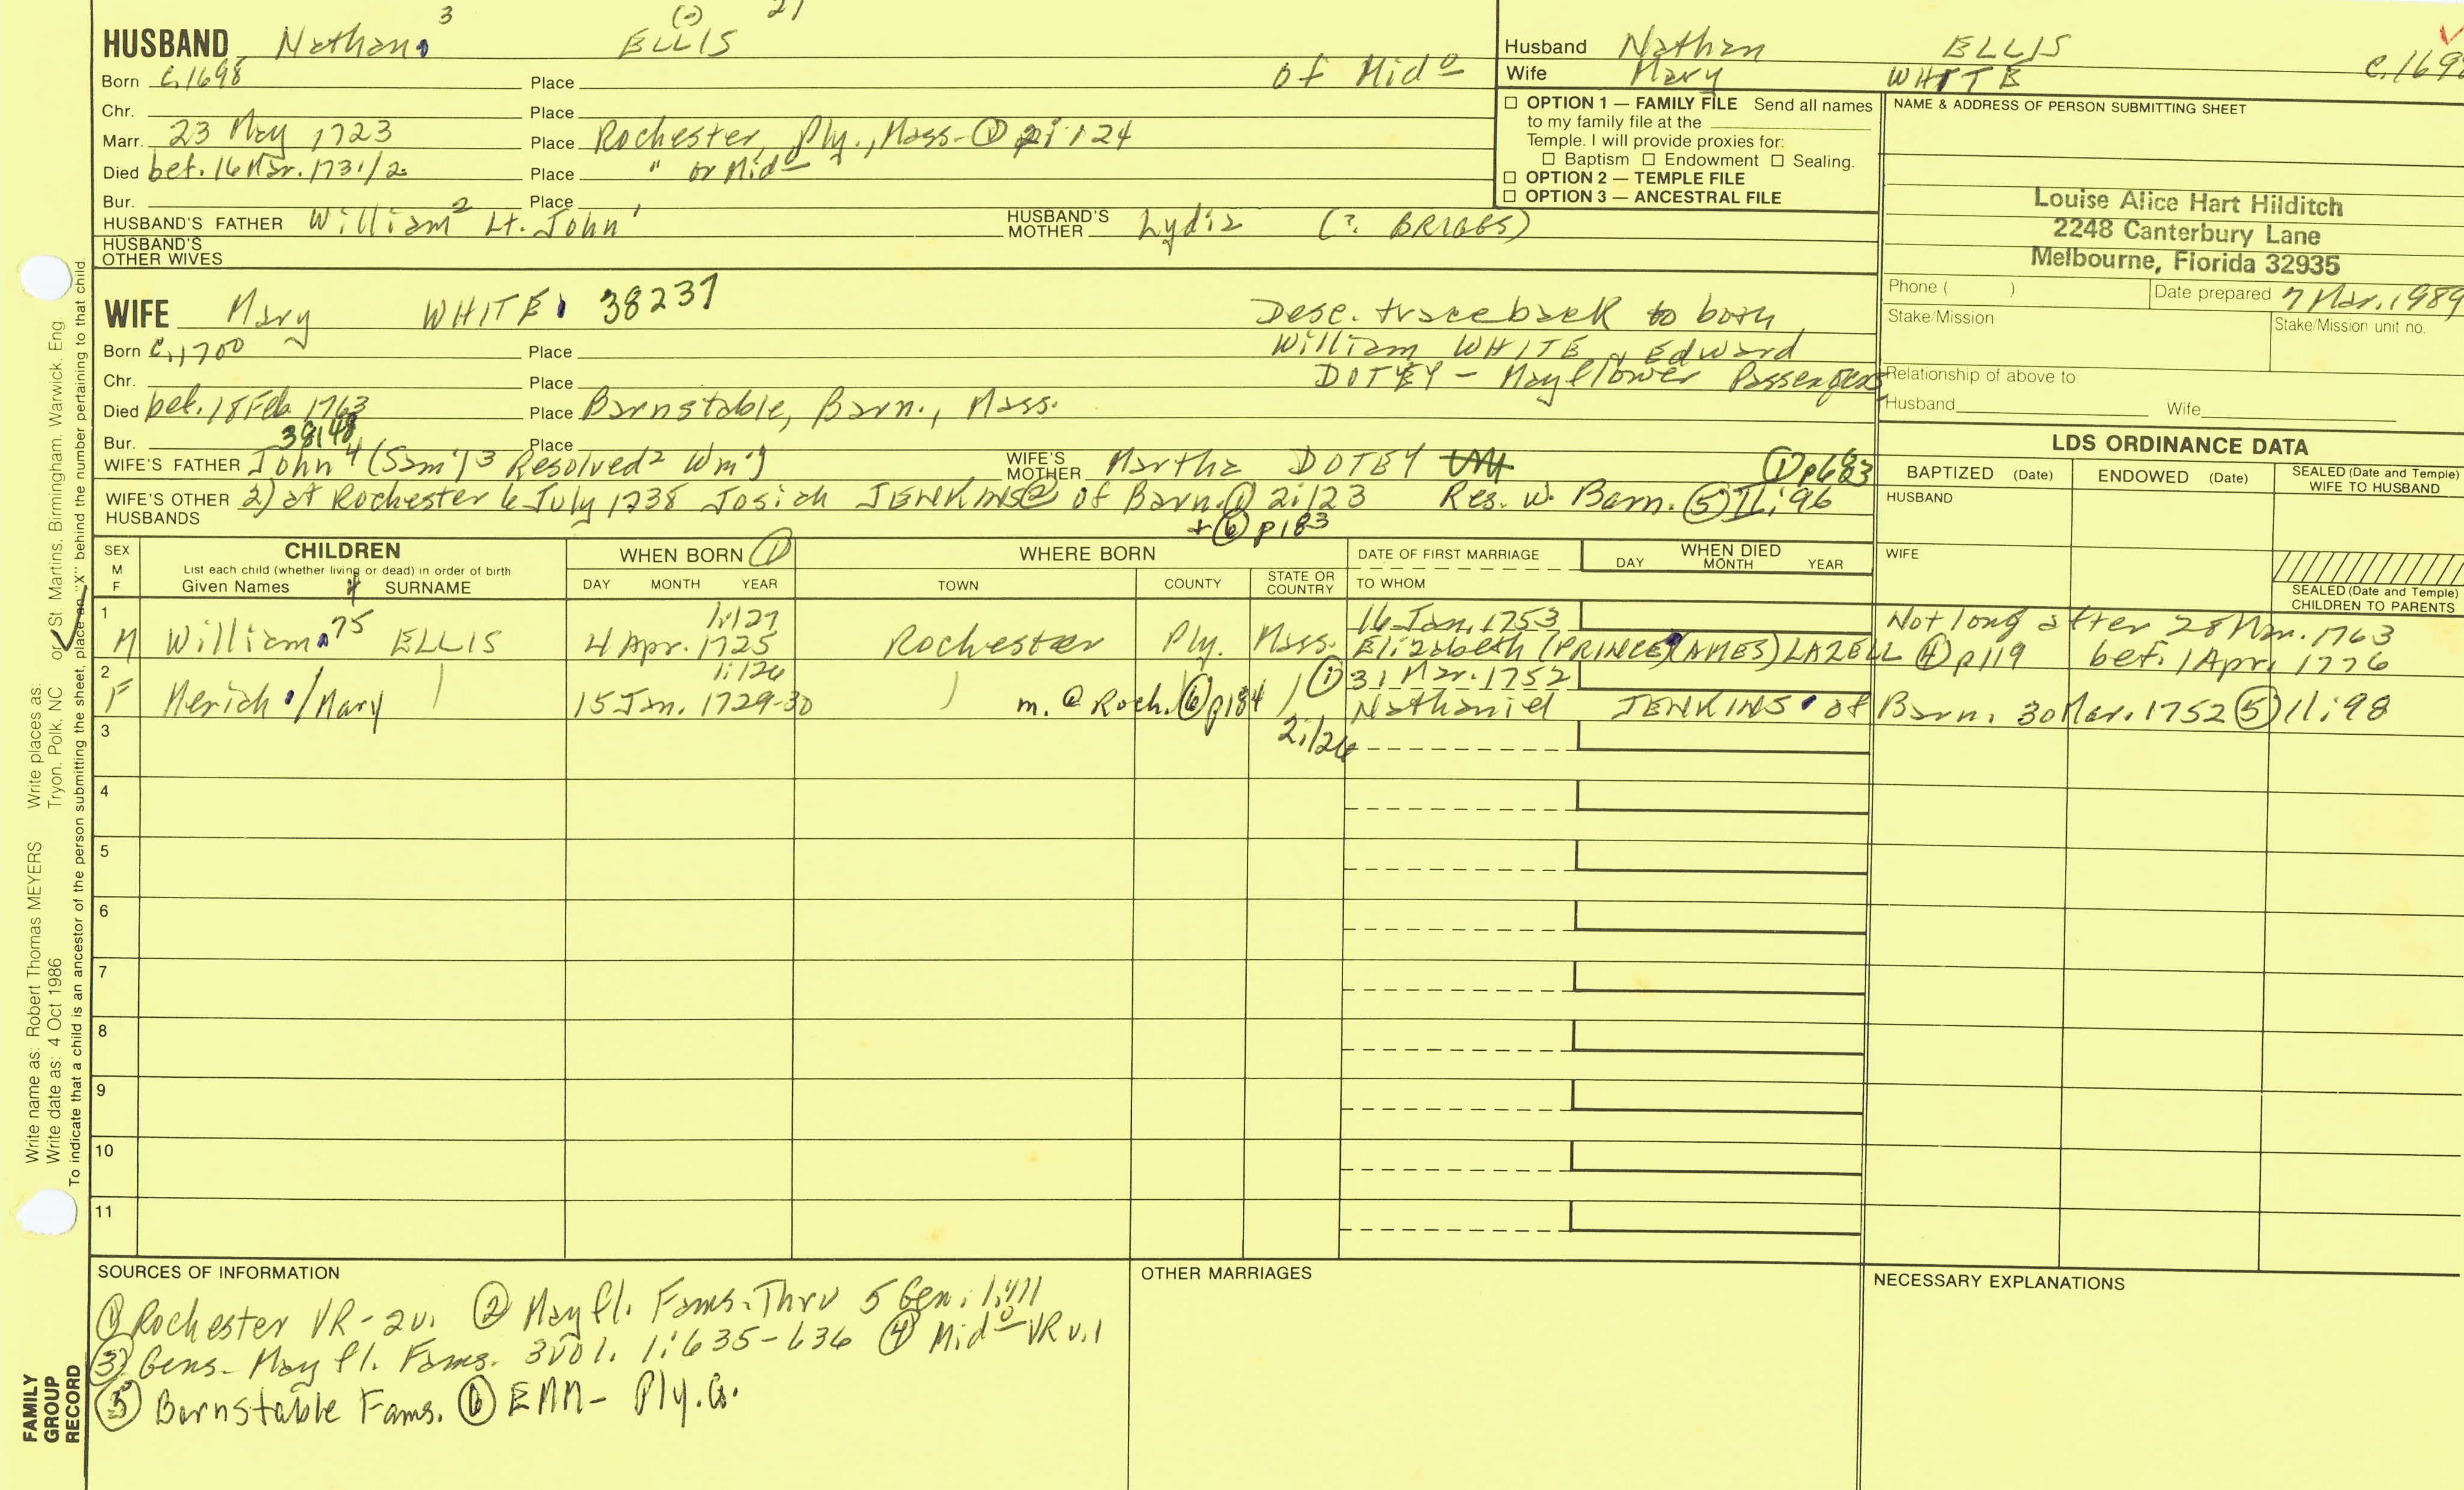 3 (2) 21
HUSBAND Nathan ELLIS of Mid°
Born c.1698 Place
Chr. Place
Marr. 23 May 1723 Place Rochester, Ply., Mass. ① 2:124
Died bet. 16 Mar. 1731/2 Place " or Mid°
Bur. Place
HUSBAND'S FATHER William² Lt. John¹ HUSBAND'S MOTHER Lydia (? BRIGGS)
HUSBAND'S OTHER WIVES
Husband Nathan ELLIS c.169
Wife Mary WHITE
☐ OPTION 1 — FAMILY FILE Send all names
to my family file at the
Temple. I will provide proxies for:
☐ Baptism ☐ Endowment ☐ Sealing.
☐ OPTION 2 — TEMPLE FILE
☐ OPTION 3 — ANCESTRAL FILE
NAME & ADDRESS OF PERSON SUBMITTING SHEET
Louise Alice Hart Hilditch
2248 Canterbury Lane
Melbourne, Florida 32935
Phone ( ) Date prepared 7 Mar. 1989
Stake/Mission Stake/Mission unit no.
Relationship of above to
Husband Wife
WIFE Mary WHITE 38237
Desc. traceback to both
William WHITE & Edward
DOTEY - Mayflower Passengers
Born c.1700 Place
Chr. Place
Died bef. 18 Feb. 1763 Place Barnstable, Barn., Mass.
Bur. 38148 Place
WIFE'S FATHER John⁴ (Sam'l³ Resolved² Wm¹) WIFE'S MOTHER Martha DOTEY ① p683
WIFE'S OTHER HUSBANDS 2) at Rochester 6 July 1738 Josiah JENKINS ② of Barn. ① 2:123 Res. W. Barn. ⑤ II:96
+ ⑥ p183
LDS ORDINANCE DATA
BAPTIZED (Date) ENDOWED (Date) SEALED (Date and Temple) WIFE TO HUSBAND
HUSBAND
WIFE
SEALED (Date and Temple) CHILDREN TO PARENTS
SEX M F
CHILDREN
List each child (whether living or dead) in order of birth
Given Names SURNAME
WHEN BORN ①
DAY MONTH YEAR
WHERE BORN
TOWN COUNTY STATE OR COUNTRY
DATE OF FIRST MARRIAGE
TO WHOM
WHEN DIED
DAY MONTH YEAR
1 1:127 16 Jan. 1753 Not long after 28 Mar. 1763
M William 75 ELLIS 4 Apr. 1725 Rochester Ply. Mass. Elizabeth (PRINCE) (AMES) LAZELL ④ p119 bef. 1 Apr. 1776
2 1:126 ① 31 Mar. 1752
F Meriah /Mary 15 Jan. 1729-30 m. @ Roch. ⑥ p184 Nathaniel JENKINS of Barn. 30 Mar. 1752 ⑤ II:98
3 2:126
4
5
6
7
8
9
10
11
SOURCES OF INFORMATION
① Rochester VR - 2v. ② Mayfl. Fams. Thru 5 Gen. 1:411
③ Gens. Mayfl. Fams. 3 vol. 1:635-636 ④ Mid° VR v.1
⑤ Barnstable Fams. ⑥ EMM - Ply. Co.
OTHER MARRIAGES
NECESSARY EXPLANATIONS
Write name as: Robert Thomas MEYERS Write places as: or St. Martins, Birmingham, Warwick, Eng
Write date as: 4 Oct 1986 Tryon, Polk, NC
To indicate that a child is an ancestor of the person submitting the sheet, place an "X" behind the number pertaining to that child.
FAMILY
GROUP
RECORD